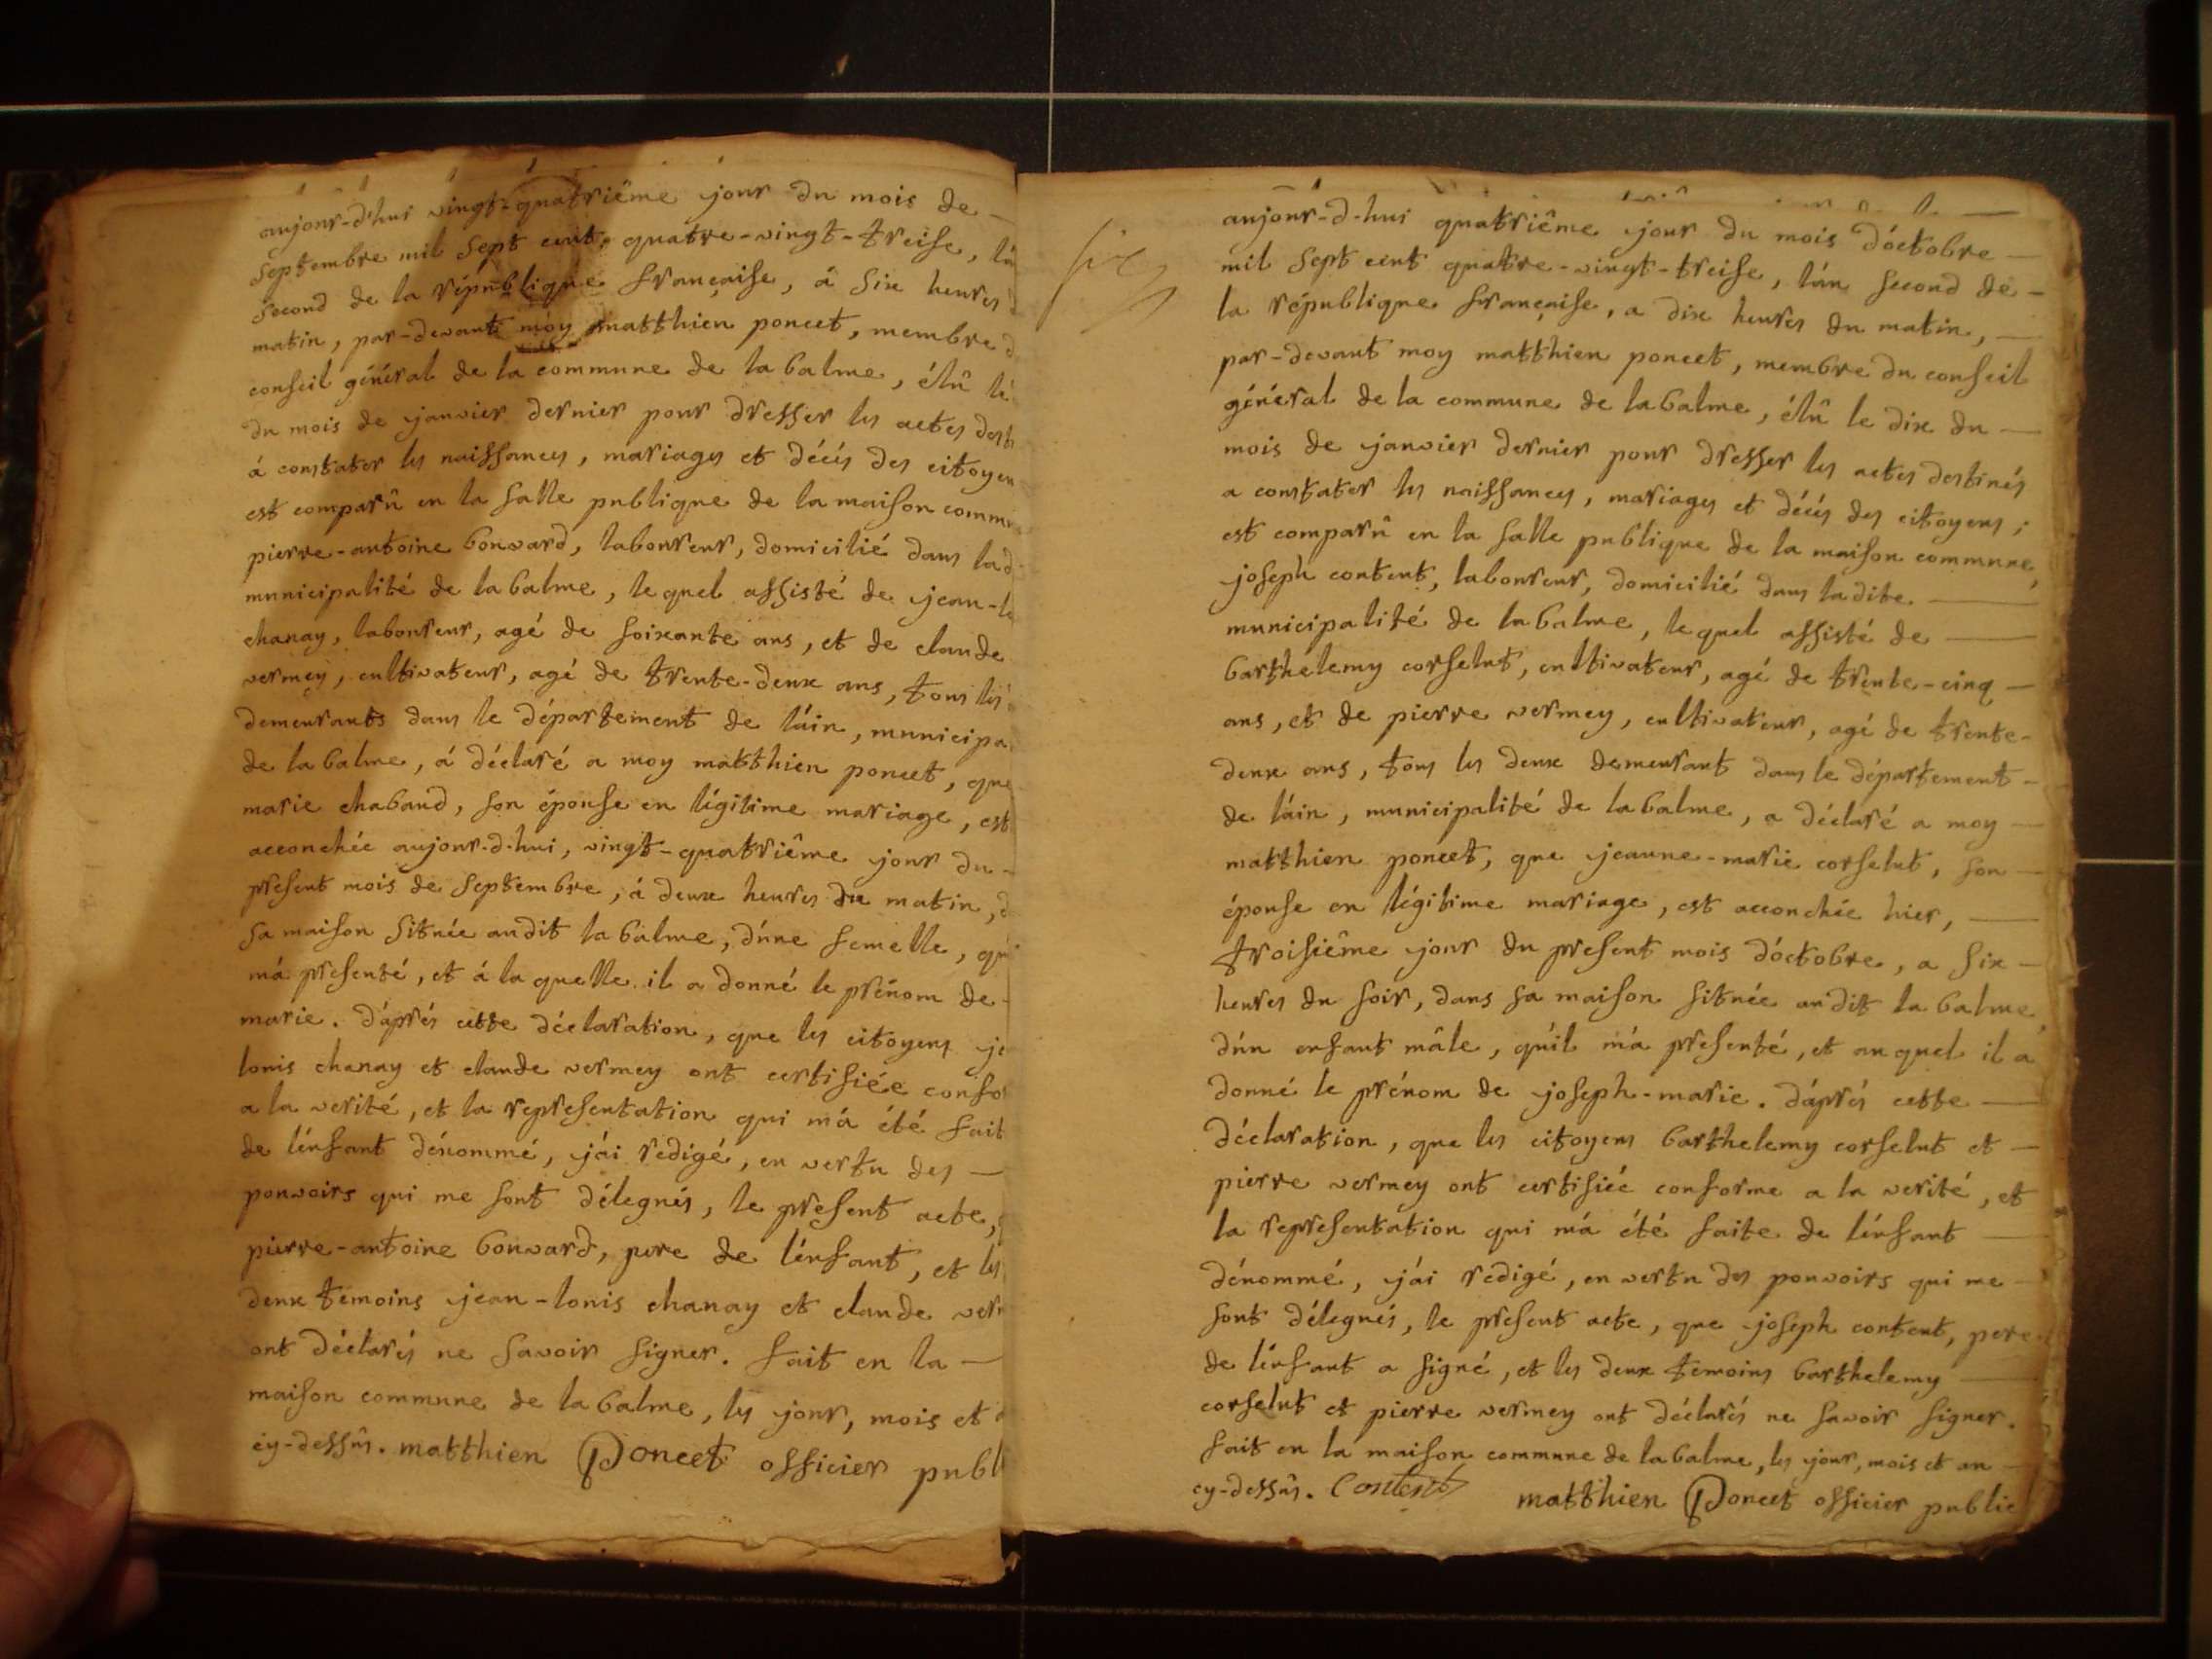 aujour-d'hui vingt-quatriême jour du mois de —
septembre mil sept cent quatre-vingt-treise, l'án
second de la république française, á six heures d
matin, par-devant moy matthieu poncet, membre d
conseil général de la commune de la balme, élû le
du mois de janvier dernier pour dresser les actes desti
á constater les naissances, mariages et décés des citoyen
est comparû en la salle publique de la maison commu
pierre-antoine bonvard, laboureur, domicilié dans lad
municipalité de la balme, le quel assisté de jean-lo
chanay, laboureur, agé de soixante ans, et de claude
vermey, cultivateur, agé de trente-deux ans, tous les
demeurants dans le département de láin, municipa
de la balme, á déclaré a moy matthieu poncet, que
marie chabaud, son épouse en légitime mariage, est
accouchée aujour-d-hui, vingt-quatriême jour du -
present mois de septembre, á deux heures du matin, d
sa maison située audit la balme, d'úne femelle, qu
m'á presenté, et á la quelle il a donné le prénom de -
marie. d'áprés cette déclaration, que les citoyens je
louis chanay et claude vermey ont certifiée confor
a la verité, et la representation qui m'á été fait
de l'énfant dénommé, j'ái redigé, en vertu des —
pouvoirs qui me sont délegués, le present acte,
pierre-antoine bonvard, pere de l'énfant, et les
deux temoins jean-louis chanay et claude verm
ont déclarés ne savoir signer. fait en la —
maison commune de la balme, les jour, mois et
cy-dessûs. matthieu Poncet officier publ
six
aujour-d-hui quatriême jour du mois d'óctobre —
mil sept cent quatre-vingt-treise, l'án second de -
la république française, a dix heures du matin, —
par-devant moy matthieu poncet, membre du conseil
général de la commune de la balme, élû le dix du —
mois de janvier dernier pour dresser les actes destinés
a constater les naissances, mariages et décés des citoyens ;
est comparû en la salle publique de la maison commune,
joseph content, laboureur, domicilié dans la dite —
municipalité de la balme, le quel assisté de —
barthelemy corselut, cultivateur, agé de trente-cinq —
ans, et de pierre vermey, cultivateur, agé de trente-
deux ans, tous les deux demeurant dans le département -
de láin, municipalité de la balme, a déclaré a moy —
matthieu poncet, que jeanne-marie corselut, son —
épouse en légitime mariage, est accouchée hier, —
troisiême jour du present mois d'óctobre, a six —
heures du soir, dans sa maison située au dit la balme,
d'ún enfant mâle, qu'íl m'á presenté, et au quel il a
donné le prénom de joseph-marie. d'áprés cette —
déclaration, que les citoyens barthelemy corselut et —
pierre vermey ont certifiée conforme a la verité, et
la representation qui m'á été faite de l'énfant —
dénommé, j'ái redigé, en vertu des pouvoirs qui me —
sont délegués, le present acte, que joseph content, pere
de l'énfant a signé, et les deux temoins barthelemy —
corselut et pierre vermey ont déclarés ne savoir signer.
fait en la maison commune de la balme, les jour, mois et an —
cy-dessûs. Content matthieu Poncet officier public